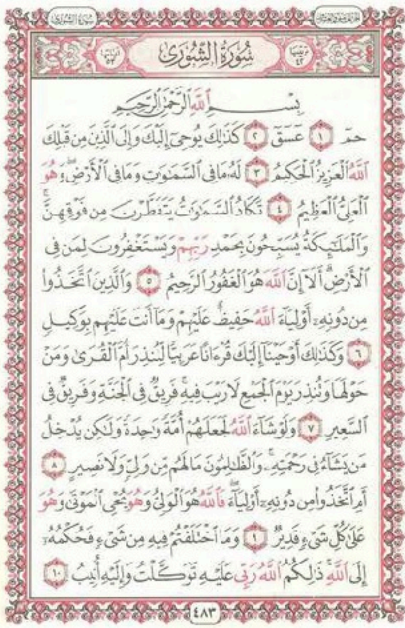 سُورَةُ الشُّورَىٰ
بِسْمِ اللَّهِ الرَّحْمَٰنِ الرَّحِيمِ
حمٓ ١ عٓسٓقٓ ٢ كَذَٰلِكَ يُوحِىٓ إِلَيْكَ وَإِلَى ٱلَّذِينَ مِن قَبْلِكَ
ٱللَّهُ ٱلْعَزِيزُ ٱلْحَكِيمُ ٣ لَهُۥ مَا فِى ٱلسَّمَٰوَٰتِ وَمَا فِى ٱلْأَرْضِ ۖ وَهُوَ
ٱلْعَلِىُّ ٱلْعَظِيمُ ٤ تَكَادُ ٱلسَّمَٰوَٰتُ يَتَفَطَّرْنَ مِن فَوْقِهِنَّ ۚ
وَٱلْمَلَٰٓئِكَةُ يُسَبِّحُونَ بِحَمْدِ رَبِّهِمْ وَيَسْتَغْفِرُونَ لِمَن فِى
ٱلْأَرْضِ ۗ أَلَآ إِنَّ ٱللَّهَ هُوَ ٱلْغَفُورُ ٱلرَّحِيمُ ٥ وَٱلَّذِينَ ٱتَّخَذُوا۟
مِن دُونِهِۦٓ أَوْلِيَآءَ ٱللَّهُ حَفِيظٌ عَلَيْهِمْ وَمَآ أَنتَ عَلَيْهِم بِوَكِيلٍ
٦ وَكَذَٰلِكَ أَوْحَيْنَآ إِلَيْكَ قُرْءَانًا عَرَبِيًّا لِّتُنذِرَ أُمَّ ٱلْقُرَىٰ وَمَنْ
حَوْلَهَا وَتُنذِرَ يَوْمَ ٱلْجَمْعِ لَا رَيْبَ فِيهِ ۚ فَرِيقٌ فِى ٱلْجَنَّةِ وَفَرِيقٌ فِى
ٱلسَّعِيرِ ٧ وَلَوْ شَآءَ ٱللَّهُ لَجَعَلَهُمْ أُمَّةً وَٰحِدَةً وَلَٰكِن يُدْخِلُ
مَن يَشَآءُ فِى رَحْمَتِهِۦ ۚ وَٱلظَّٰلِمُونَ مَا لَهُم مِّن وَلِىٍّ وَلَا نَصِيرٍ ٨
أَمِ ٱتَّخَذُوا۟ مِن دُونِهِۦٓ أَوْلِيَآءَ ۖ فَٱللَّهُ هُوَ ٱلْوَلِىُّ وَهُوَ يُحْىِ ٱلْمَوْتَىٰ وَهُوَ
عَلَىٰ كُلِّ شَىْءٍ قَدِيرٌ ٩ وَمَا ٱخْتَلَفْتُمْ فِيهِ مِن شَىْءٍ فَحُكْمُهُۥٓ
إِلَى ٱللَّهِ ۚ ذَٰلِكُمُ ٱللَّهُ رَبِّى عَلَيْهِ تَوَكَّلْتُ وَإِلَيْهِ أُنِيبُ ١٠
٤٨٣